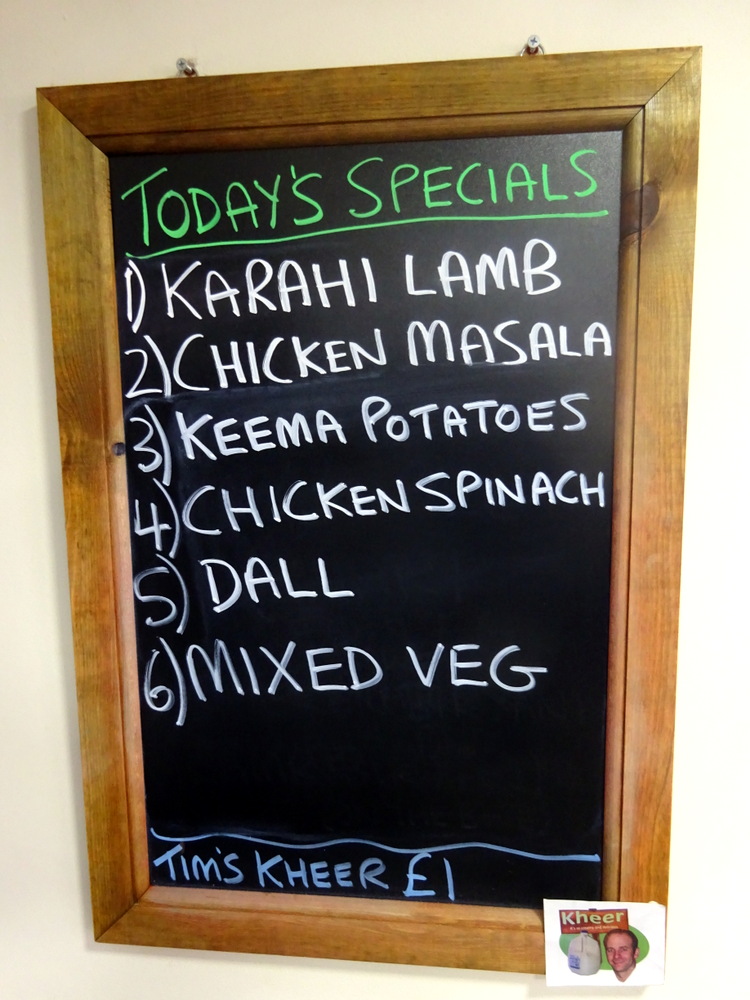 TODAY'S SPECIALS
1) KARAHI LAMB
2) CHICKEN MASALA
3) KEEMA POTATOES
4) CHICKEN SPINACH
5) DALL
6) MIXED VEG
TIM'S KHEER £1
Kheer